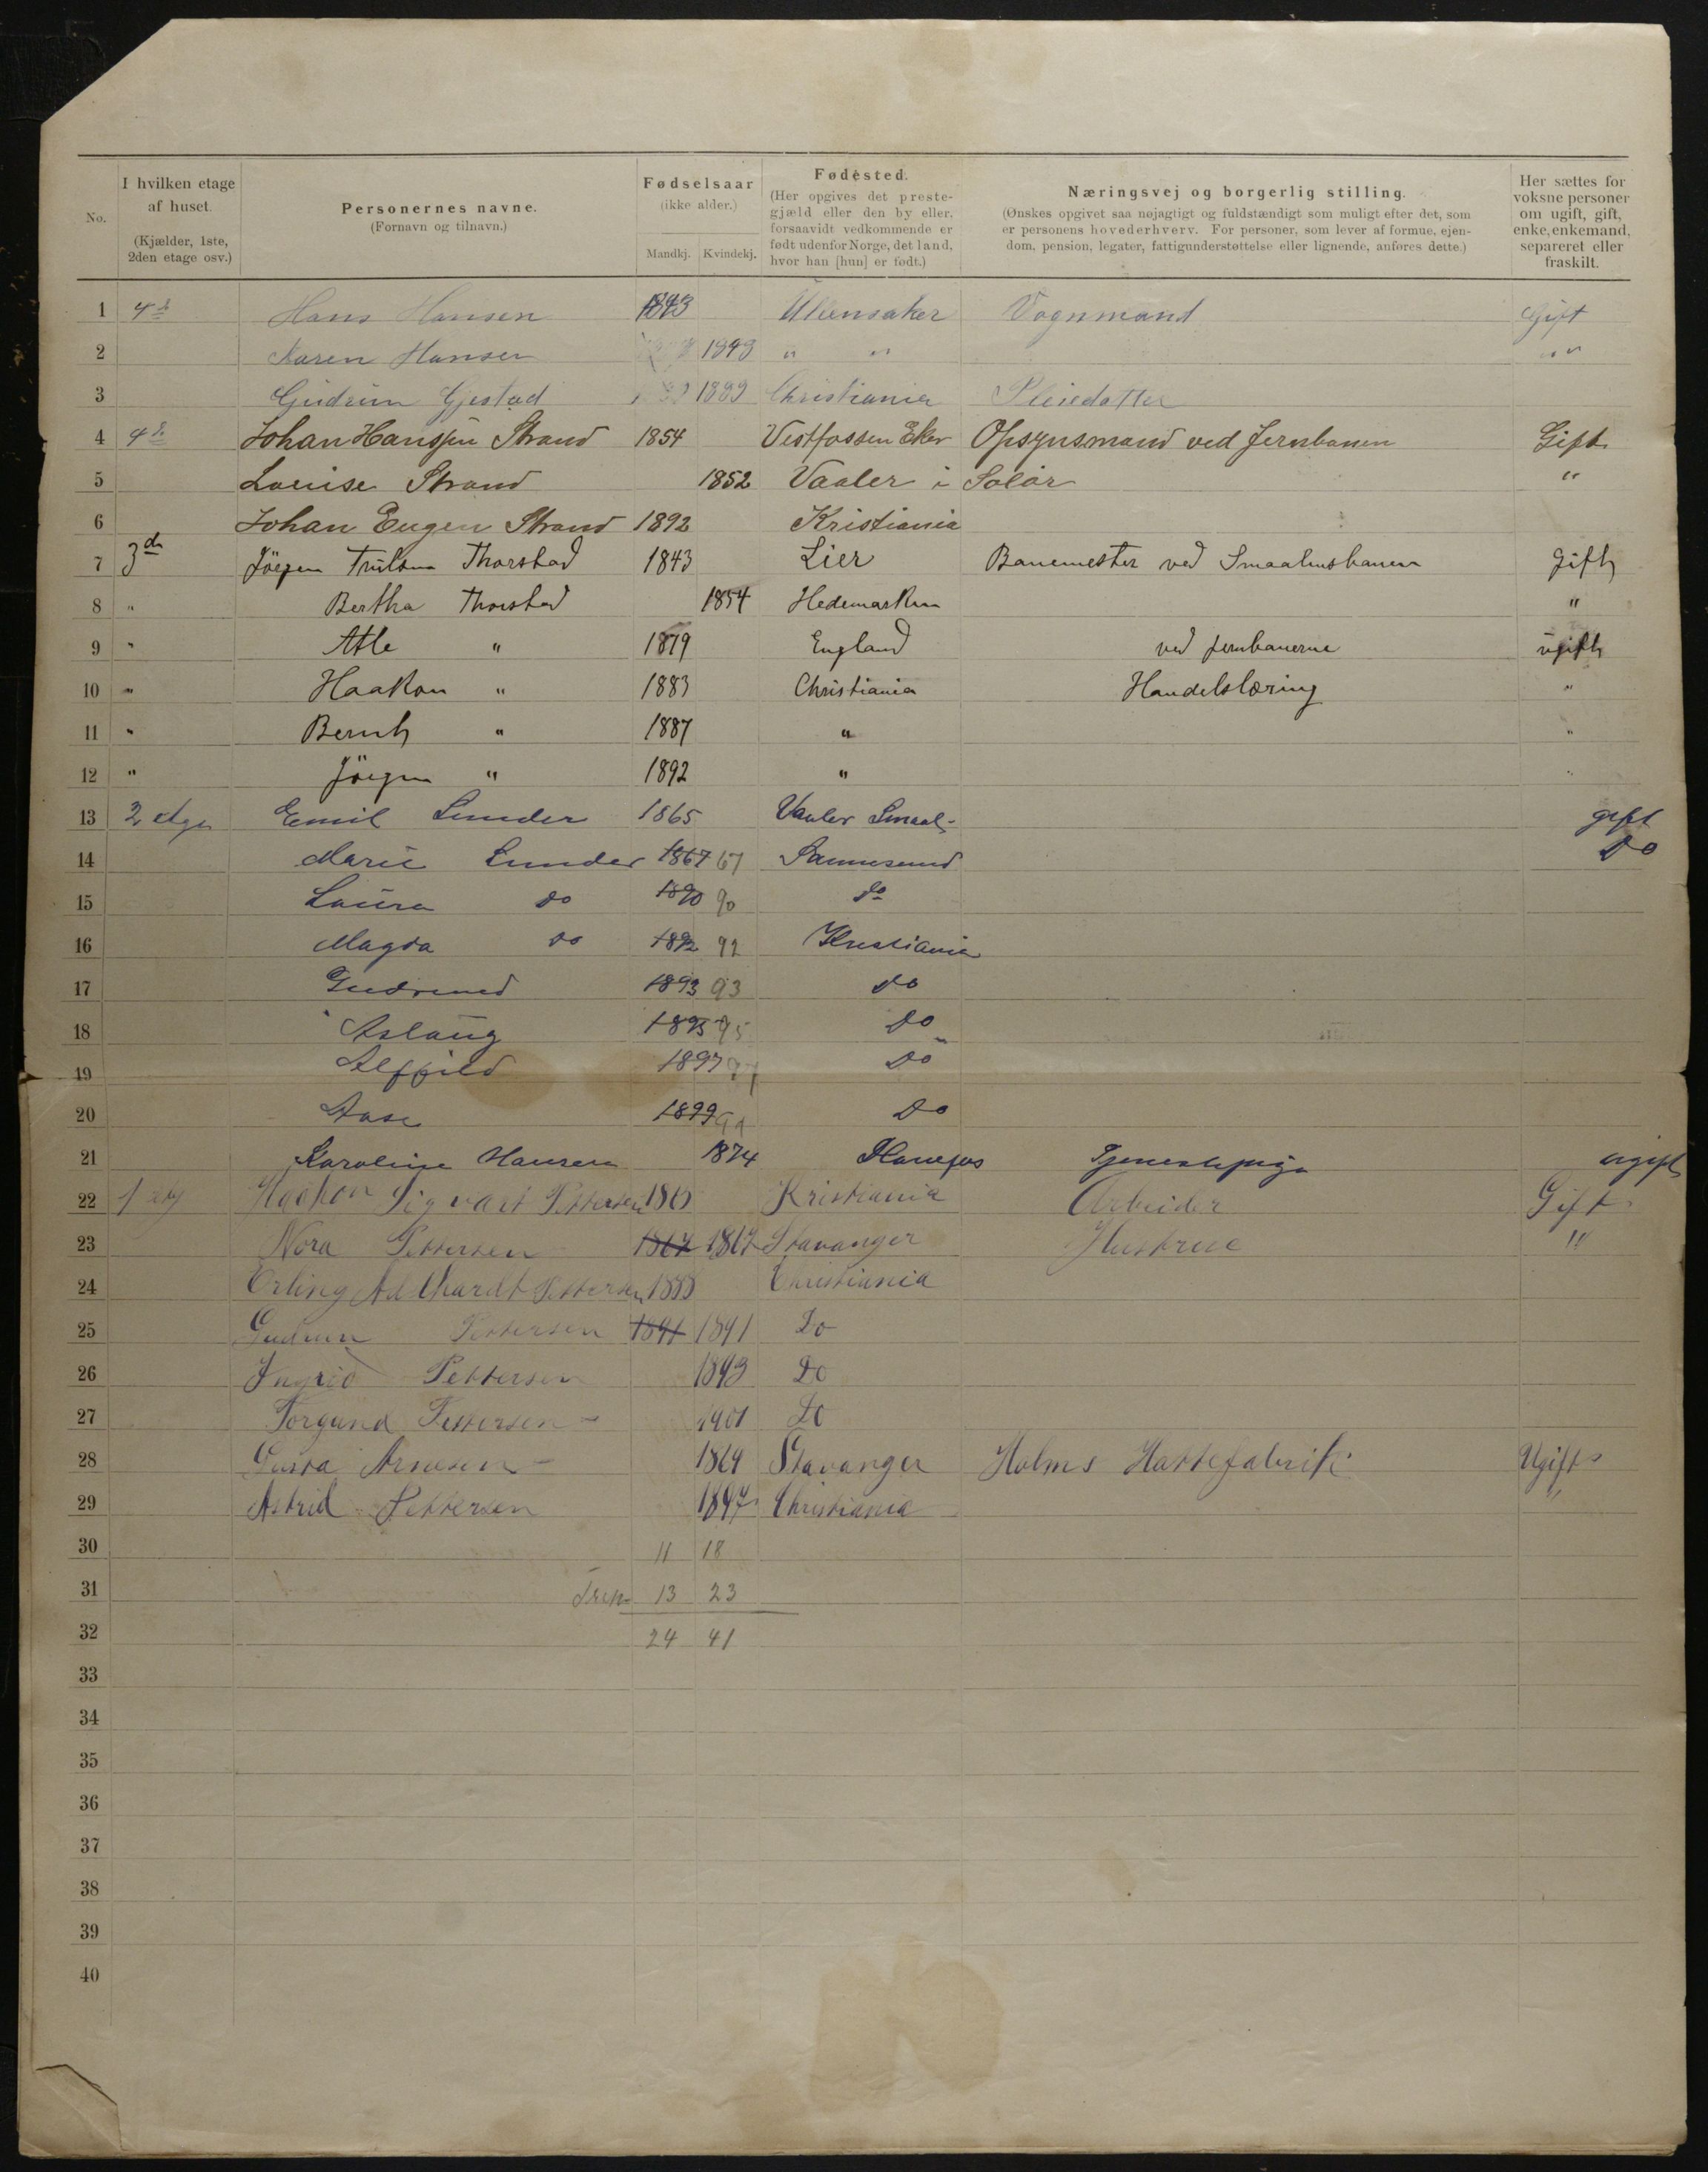 No. I hvilken etage af huset. (Kjælder, 1ste, 2den etage osv.) Personernes navne. (Fornavn og tilnavn.) Fødselsaar (ikke alder.) Mandkj. Kvindekj. Fødested. (Her opgives det prestegjæld eller den by eller, forsaavidt vedkommende er født udenfor Norge, det land, hvor han [hun] er født.) Næringsvej og borgerlig stilling. (Ønskes opgivet saa nøjagtigt og fuldstændigt som muligt efter det, som er personens hovederhverv. For personer, som lever af formue, ejendom, pension, legater, fattigunderstøttelse eller lignende, anføres dette.) Her sættes for voksne personer om ugift, gift, enke, enkemand, separeret eller fraskilt.
1 Hans Hansen 1843 Ullensaker Vognmand Gift
2 Karen Hansen 1843 " " " "
3 Gudrun Gjestad 1889 Christiania Pleiedatter
4 Johan Hansen Strand 1854 Vestfossen Eker Opsynsmand ved Jernbanen Gift
5 Lovise Strand 1852 Vaaler i Solör "
6 Johan Eugen Strand 1892 Kristiania
7 3d Jörgen Trulsen Thorstad 1843 Lier Banemester ved Smaalensbanen Gift
8 " Bertha Thorstad 1854 Hedemarken "
9 " Atle " 1879 England ved jernbanerne ugift
10 " Haakon " 1883 Christiania Handelslæring "
11 " Bernh " 1887 " "
12 " Jörgen " 1892 " "
13 2 etge Emil Lunder 1865 Vaaler Smaal- gift
14 Marie Lunder 1867 67 Sannesund Do
15 Laura do 1890 90 do
16 Magda do 1892 92 Kristiania
17 Gudrund 1893 93 do
18 Aslaug 1895 95 Do
19 Alfhild 1897 97 Do
20 Aase 1899 99 Do
21 Karoline Hansen 1874 Hønefos Tjenestepige ugift
22 Haakon Sigvart Pettersen 1865 Kristiania Arbeider Gift
23 Nora Pettersen 1867 1867 Stavanger Hustrue "
24 Erling Pettersen 1888 Christiania
25 Gudrun Pettersen 1891 1891 Do
26 Ingrid Pettersen 1893 Do
27 Torgund Pettersen - 1901 Do
28 Gusta Arnesen - 1869 Stavanger Holms Hattefabrik Ugift
29 Astrid Pettersen 1897 Christiania "
30 11 18
31 13 23
32 24 41
33
34
35
36
37
38
39
40